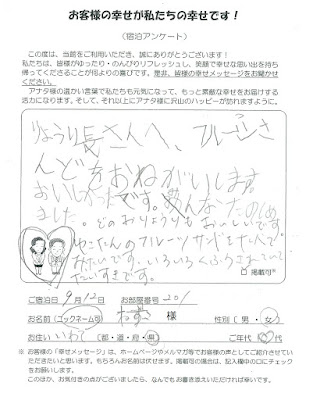 お客様の幸せが私たちの幸せです！
（宿泊アンケート）
この度は、当館をご利用いただき、誠にありがとうございます！
私たちは、皆様がゆったり・のんびりリフレッシュし、笑顔で幸せな思い出を持ち
帰ってくださることが何よりの喜びです。是非、皆様の幸せメッセージをお聞かせ
ください。
アナタ様の温かい言葉で私たちも元気になって、もっと素敵な幸せをお届けする
活力になります。そして、それ以上にアナタ様に沢山のハッピーが訪れますように。
りょうり長さんへ、フルーツさ
んどをおねがいします。
おいしかったです。みんなたのしめ
ました。どのおりょうりもおいしいです。
フルーツサンドを
みたいです。いろいろ
だいすきです。
□ 掲載可※
ご宿泊日 9月12日 お部屋番号 201
お名前(ニックネーム可) 様 性別(男・女)
お住い いわて (都・道・府・県) ご年代 代
※ お客様の「幸せメッセージ」は、ホームページやメルマガ等でお客様の声としてご紹介させてい
ただきたいと思います。もちろんお名前は伏せます。掲載可の場合は、記入欄中の口にチェック
をお願いします。
このほか、お気付きの点がございましたら、なんでもお書き添えいただければ幸いです。